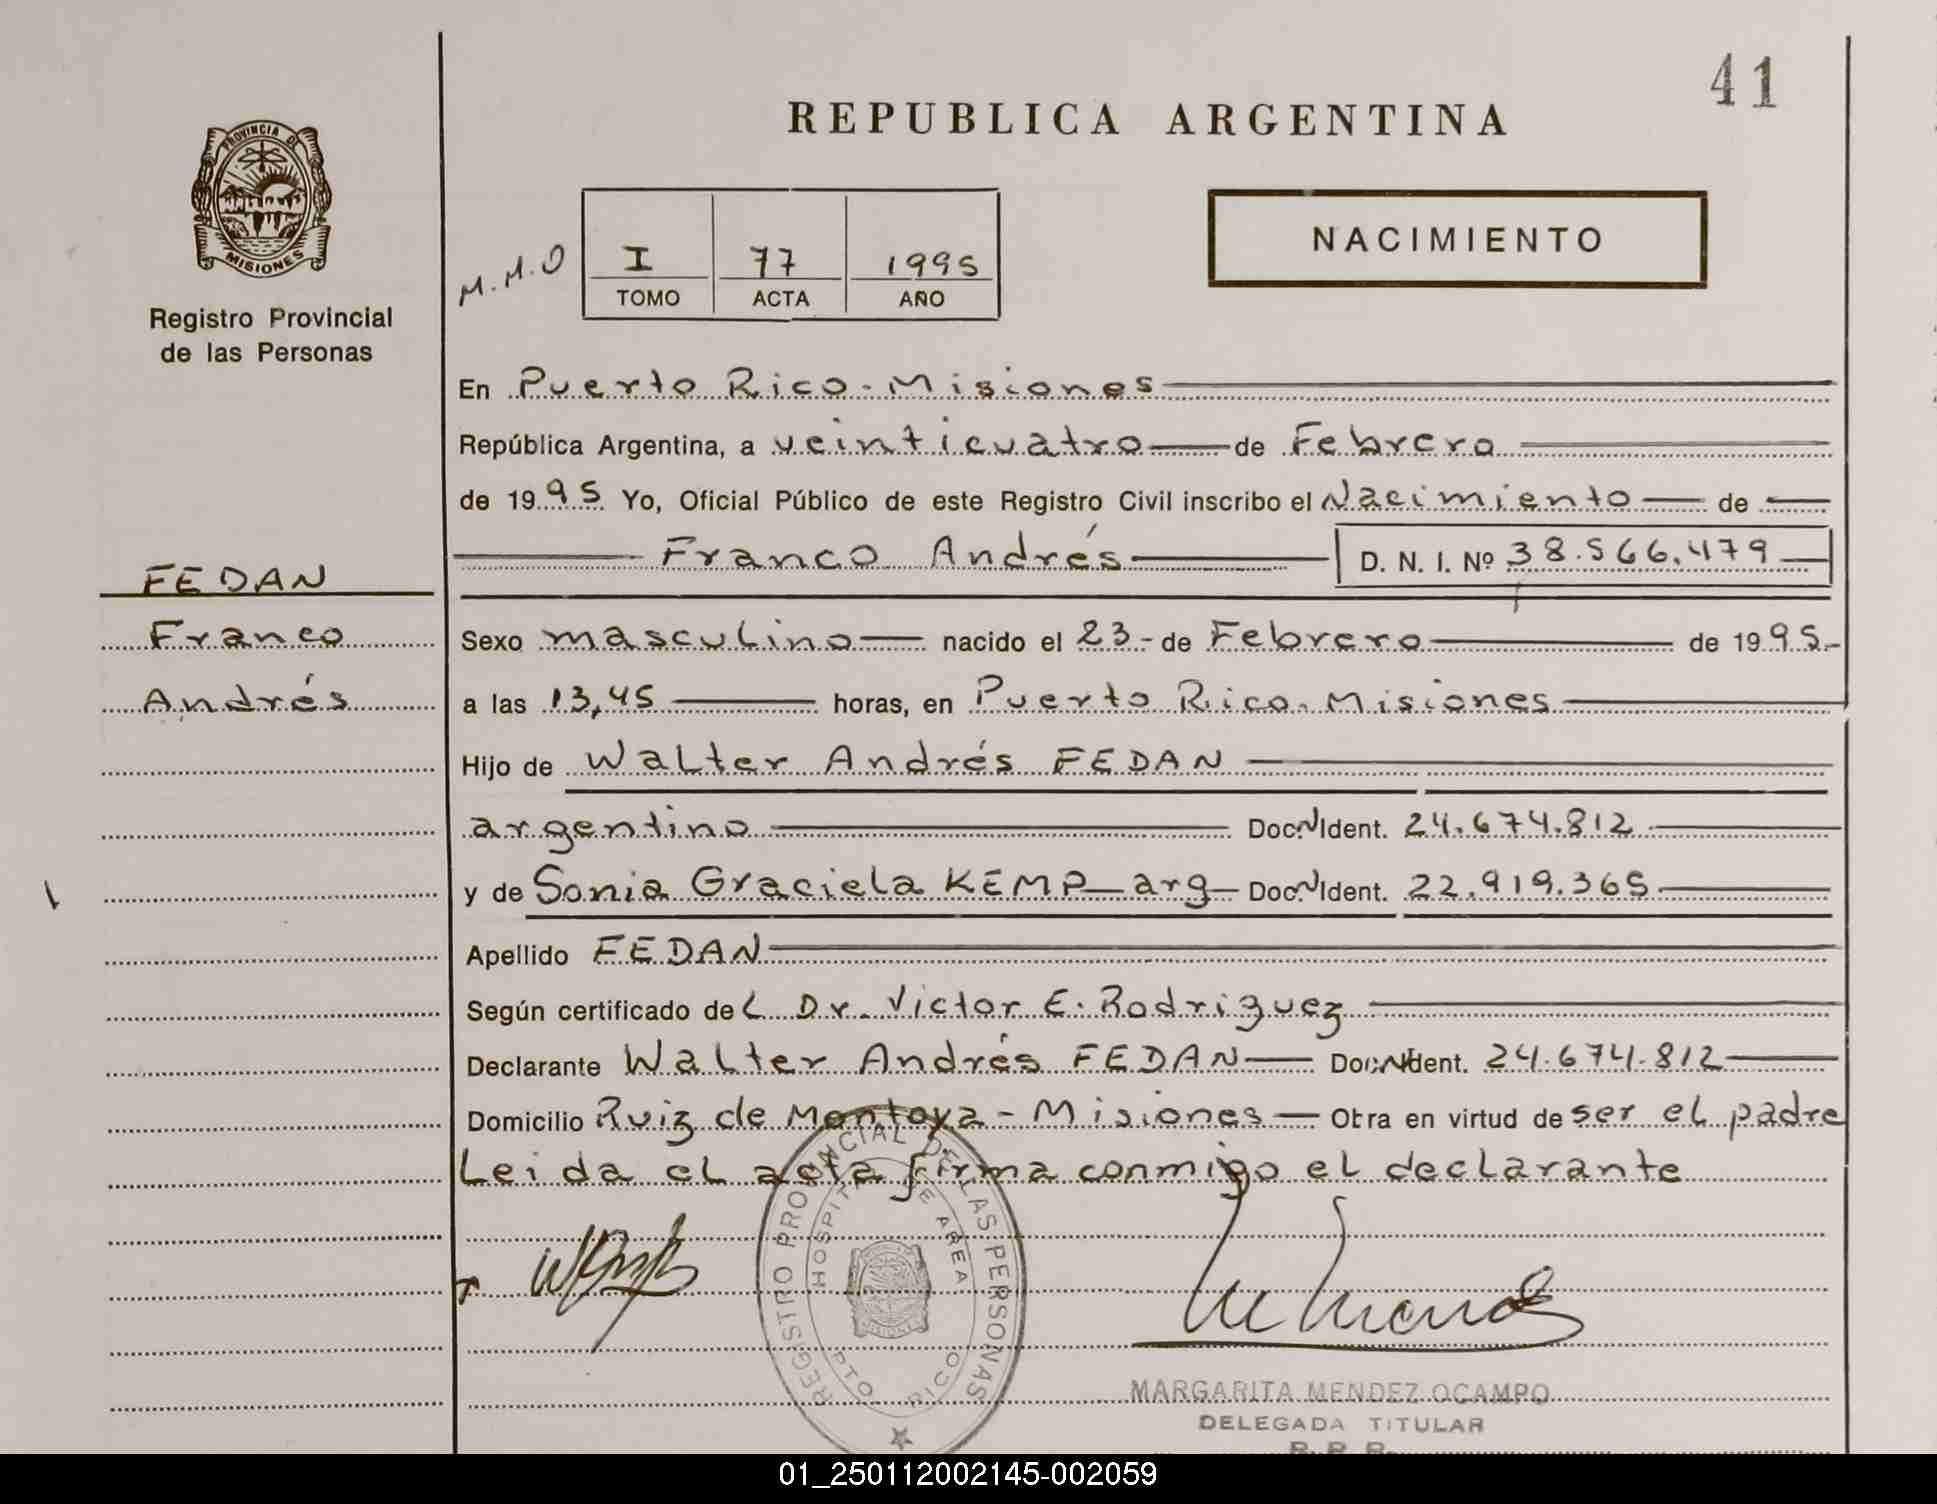 41
REPUBLICA ARGENTINA
PROVINCIA DE
MISIONES
Registro Provincial
de las Personas
M.M.O
I 77 1995
TOMO ACTA AÑO
NACIMIENTO
En Puerto Rico - Misiones
República Argentina, a veinticuatro de Febrero
de 1995 Yo, Oficial Público de este Registro Civil inscribo el Nacimiento de
Franco Andrés D. N. I. Nº 38.566.479
FEDAN
Franco
Andrés
Sexo masculino nacido el 23 - de Febrero de 1995.-
a las 13,45 horas, en Puerto Rico. Misiones
Hijo de Walter Andrés FEDAN
argentino Doc. N Ident. 24.674.812
y de Sonia Graciela KEMP arg Doc. N Ident. 22.919.365
Apellido FEDAN
Según certificado del Dr. Victor E. Rodriguez
Declarante Walter Andrés FEDAN Doc. N Ident. 24.674.812
Domicilio Ruiz de Montoya - Misiones Obra en virtud de ser el padre
Leida el acta firma conmigo el declarante
REGISTRO PROVINCIAL DE LAS PERSONAS
HOSPITAL DE AREA
MISIONES
PTO RICO
MARGARITA MENDEZ OCAMPO
DELEGADA TITULAR
R. P. P.
01_250112002145-002059